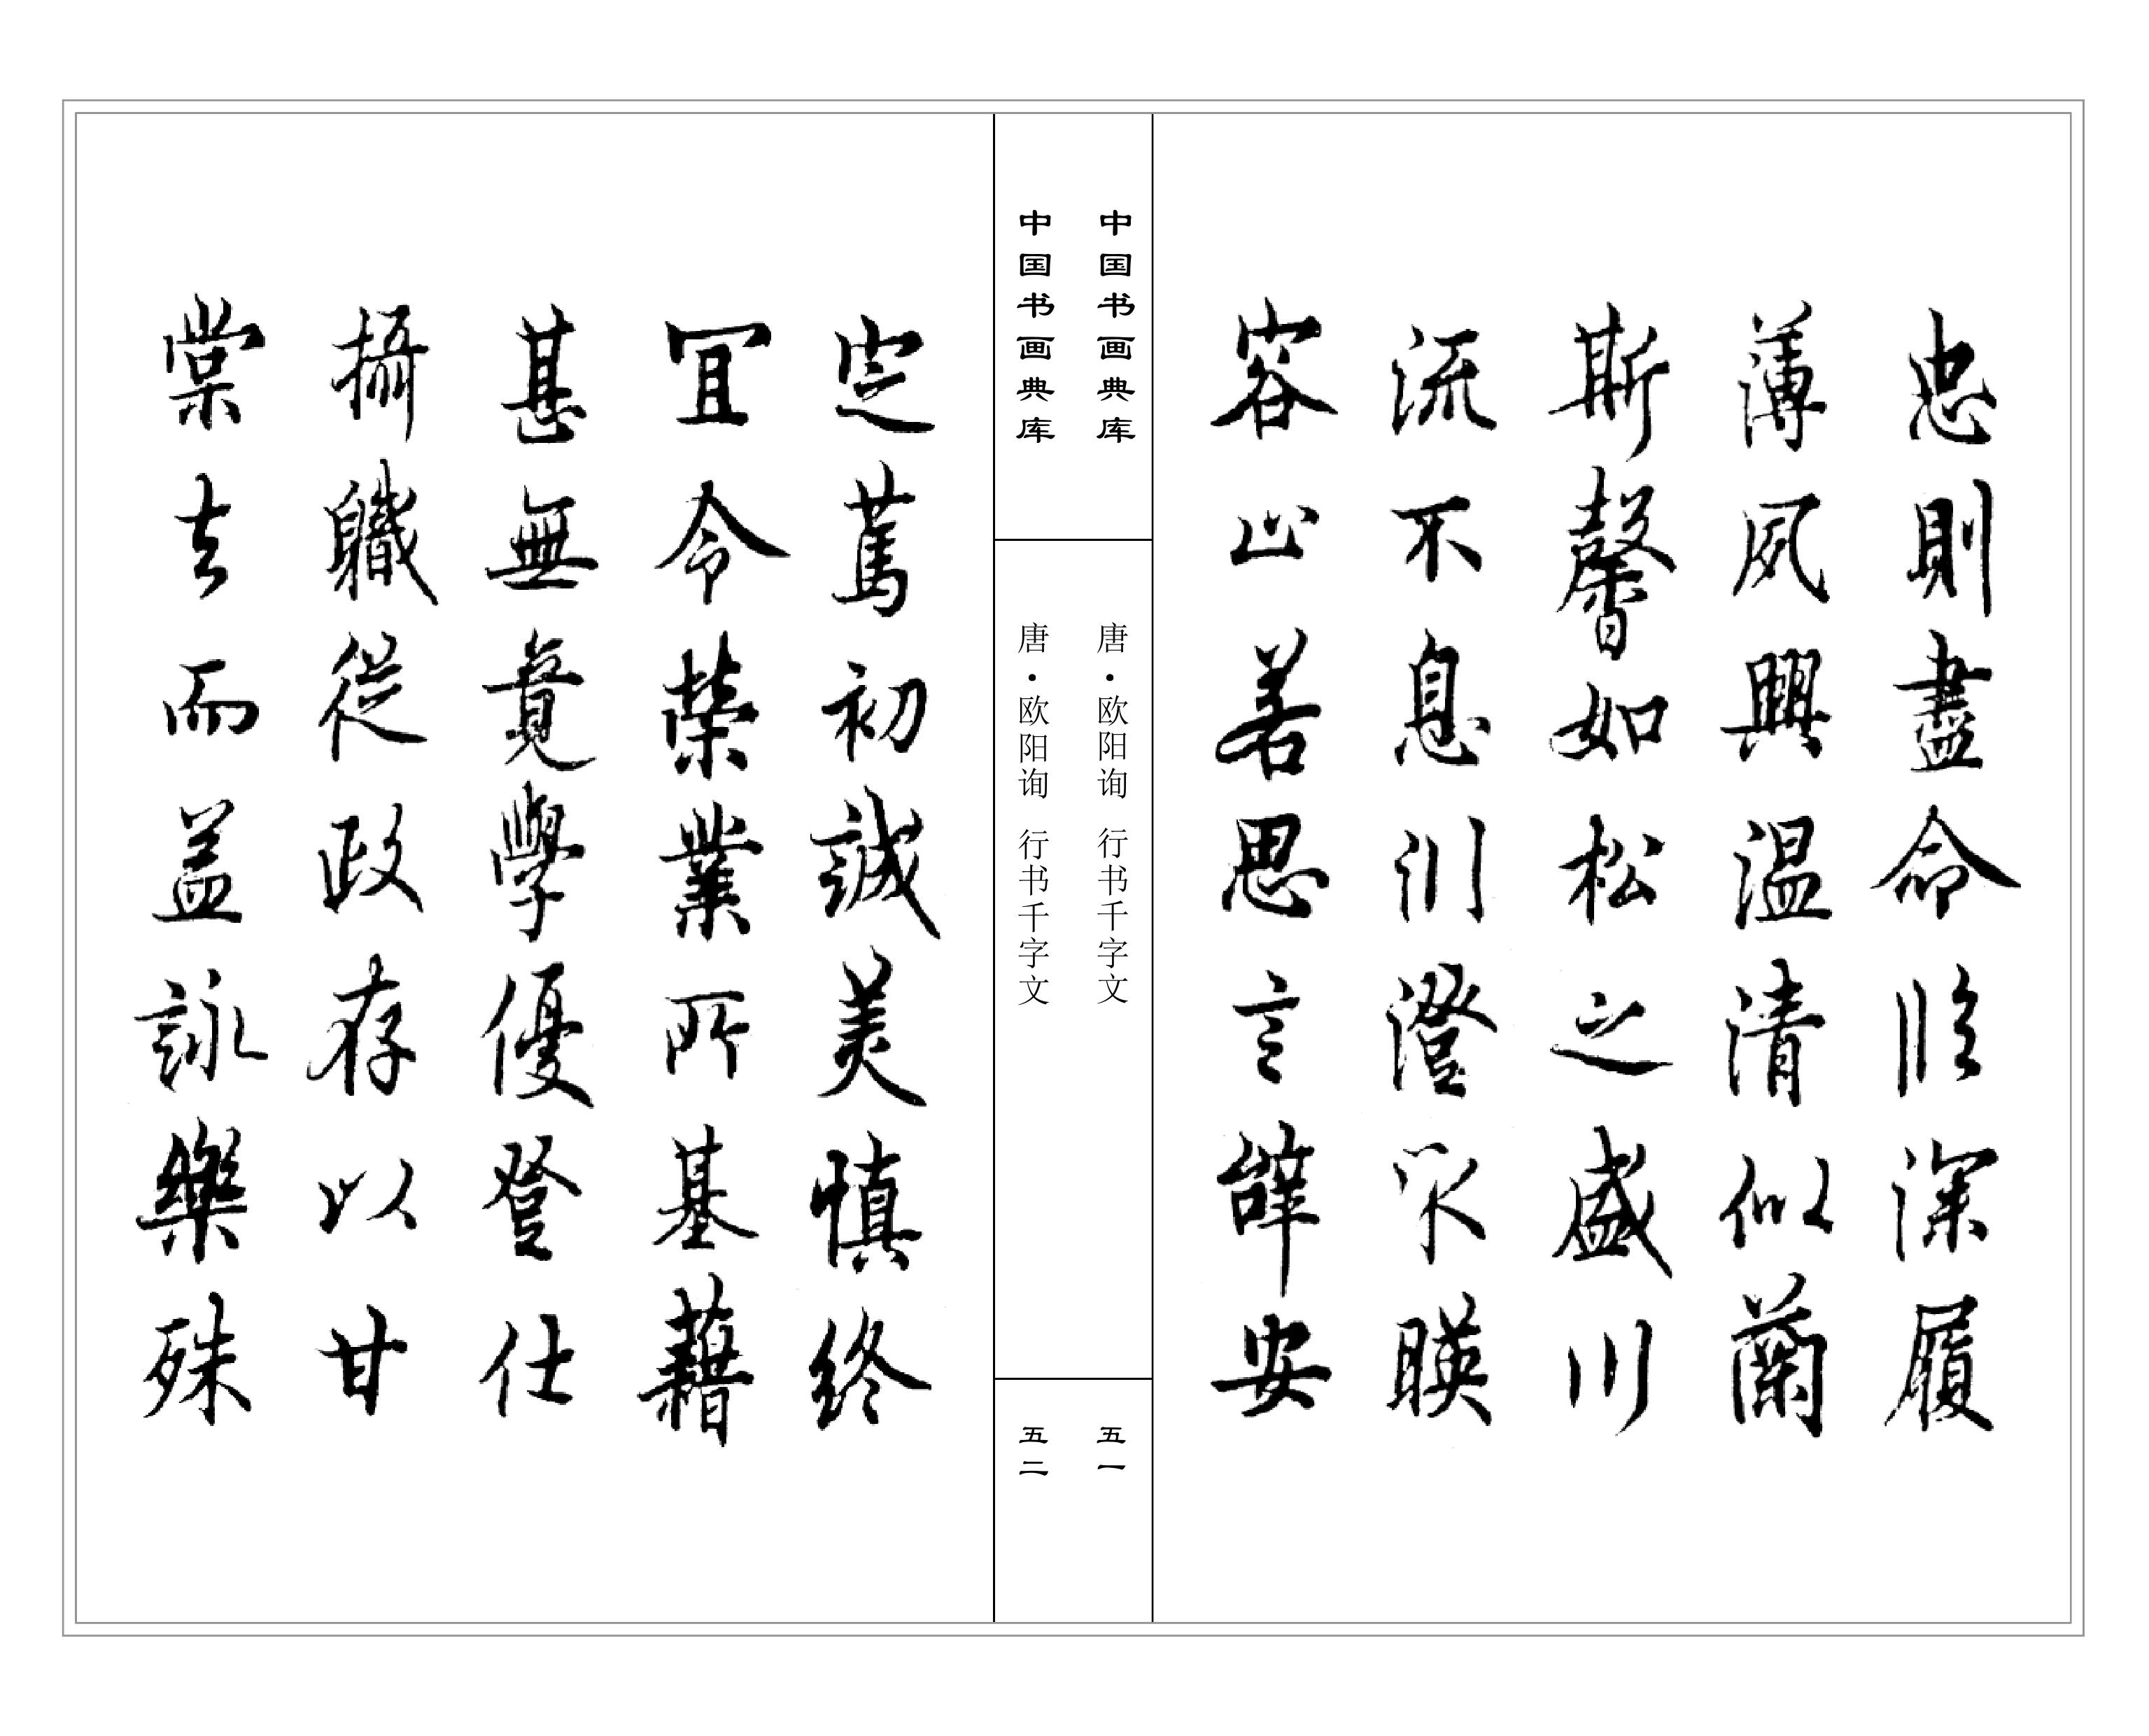 忠則盡命臨深履
薄夙興溫清似蘭
斯馨如松之盛川
流不息川澄取暎
容止若思言辞安
中国书画典库
唐·欧阳询 行书千字文
五一
中国书画典库
唐·欧阳询 行书千字文
五二
定篤初誠美慎終
宜令榮業所基藉
甚無竟學優登仕
攝職從政存以甘
棠去而益詠樂殊